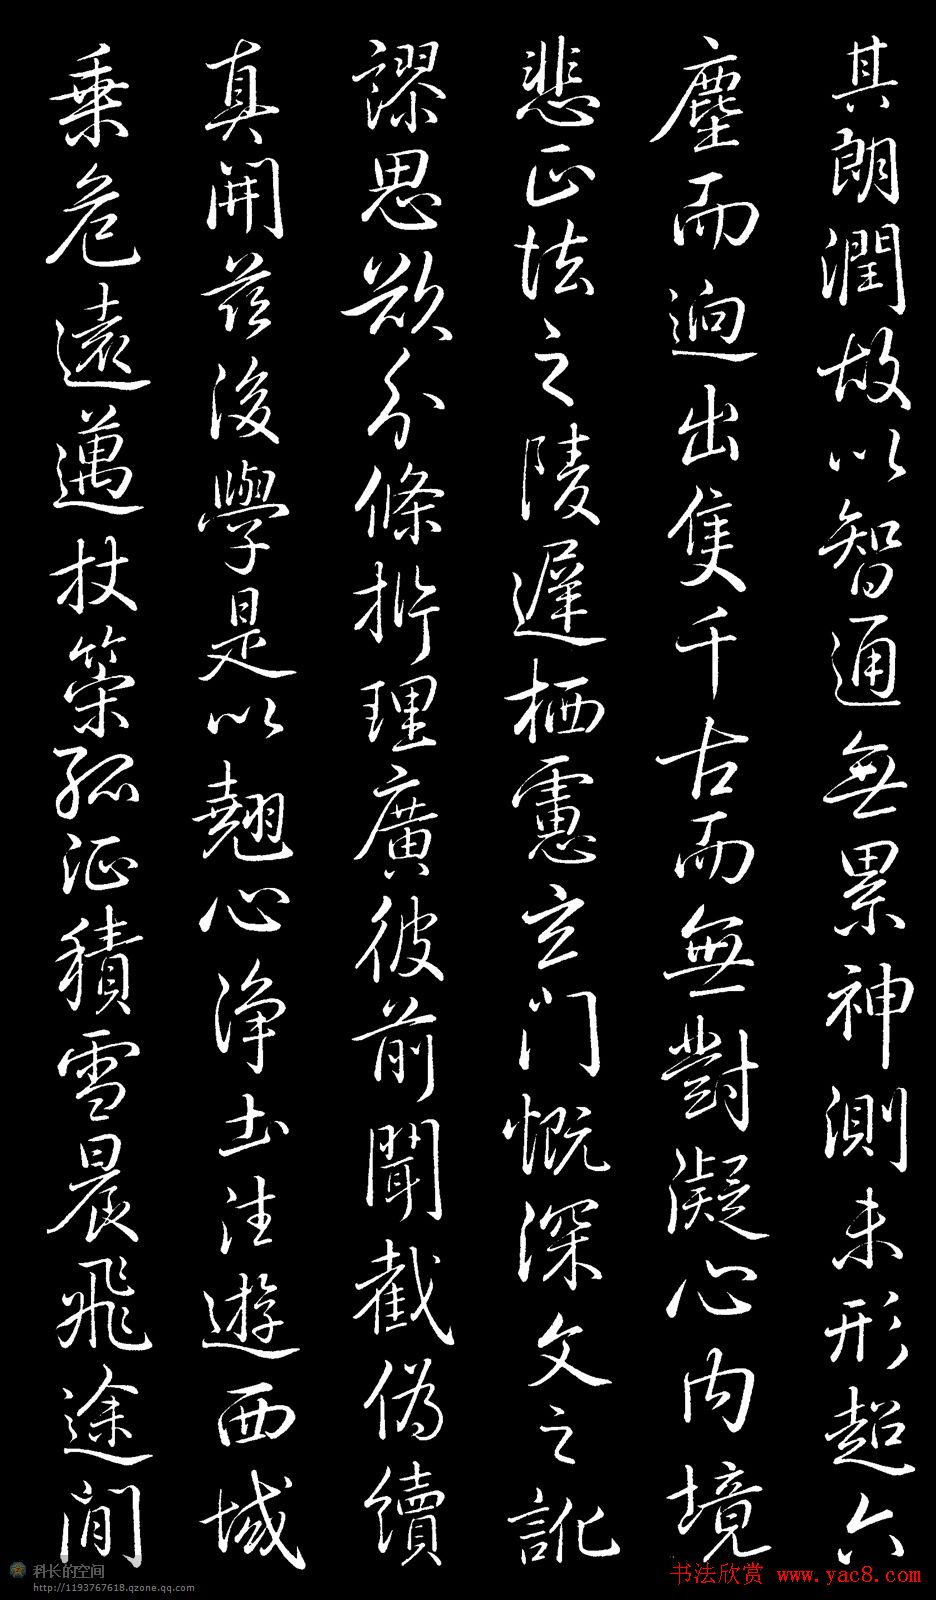 其朗潤故以智通無累神測未形超六
塵而迥出隻千古而無對凝心内境
悲正法之陵遲栖慮玄門慨深文之訛
謬思欲分條析理廣彼前聞截偽續
真開茲後學是以翹心淨土往遊西域
乗危遠邁杖策孤征積雪晨飛途間
科长的空间
http://1193767618.qzone.qq.com
书法欣赏 www.yac8.com